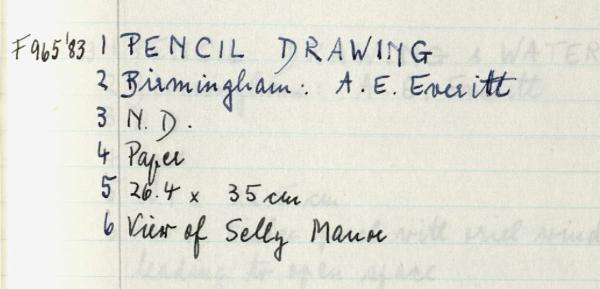 F965'83 1 PENCIL DRAWING
2 Birmingham: A. E. Everitt
3 N.D.
4 Paper
5 26.4 x 35 cm
6 View of Selly Manor